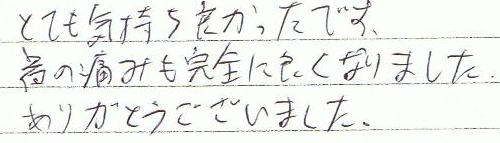 とても気持ち良かったです、
肩の痛みも完全に良くなりました.
ありがとうございました、